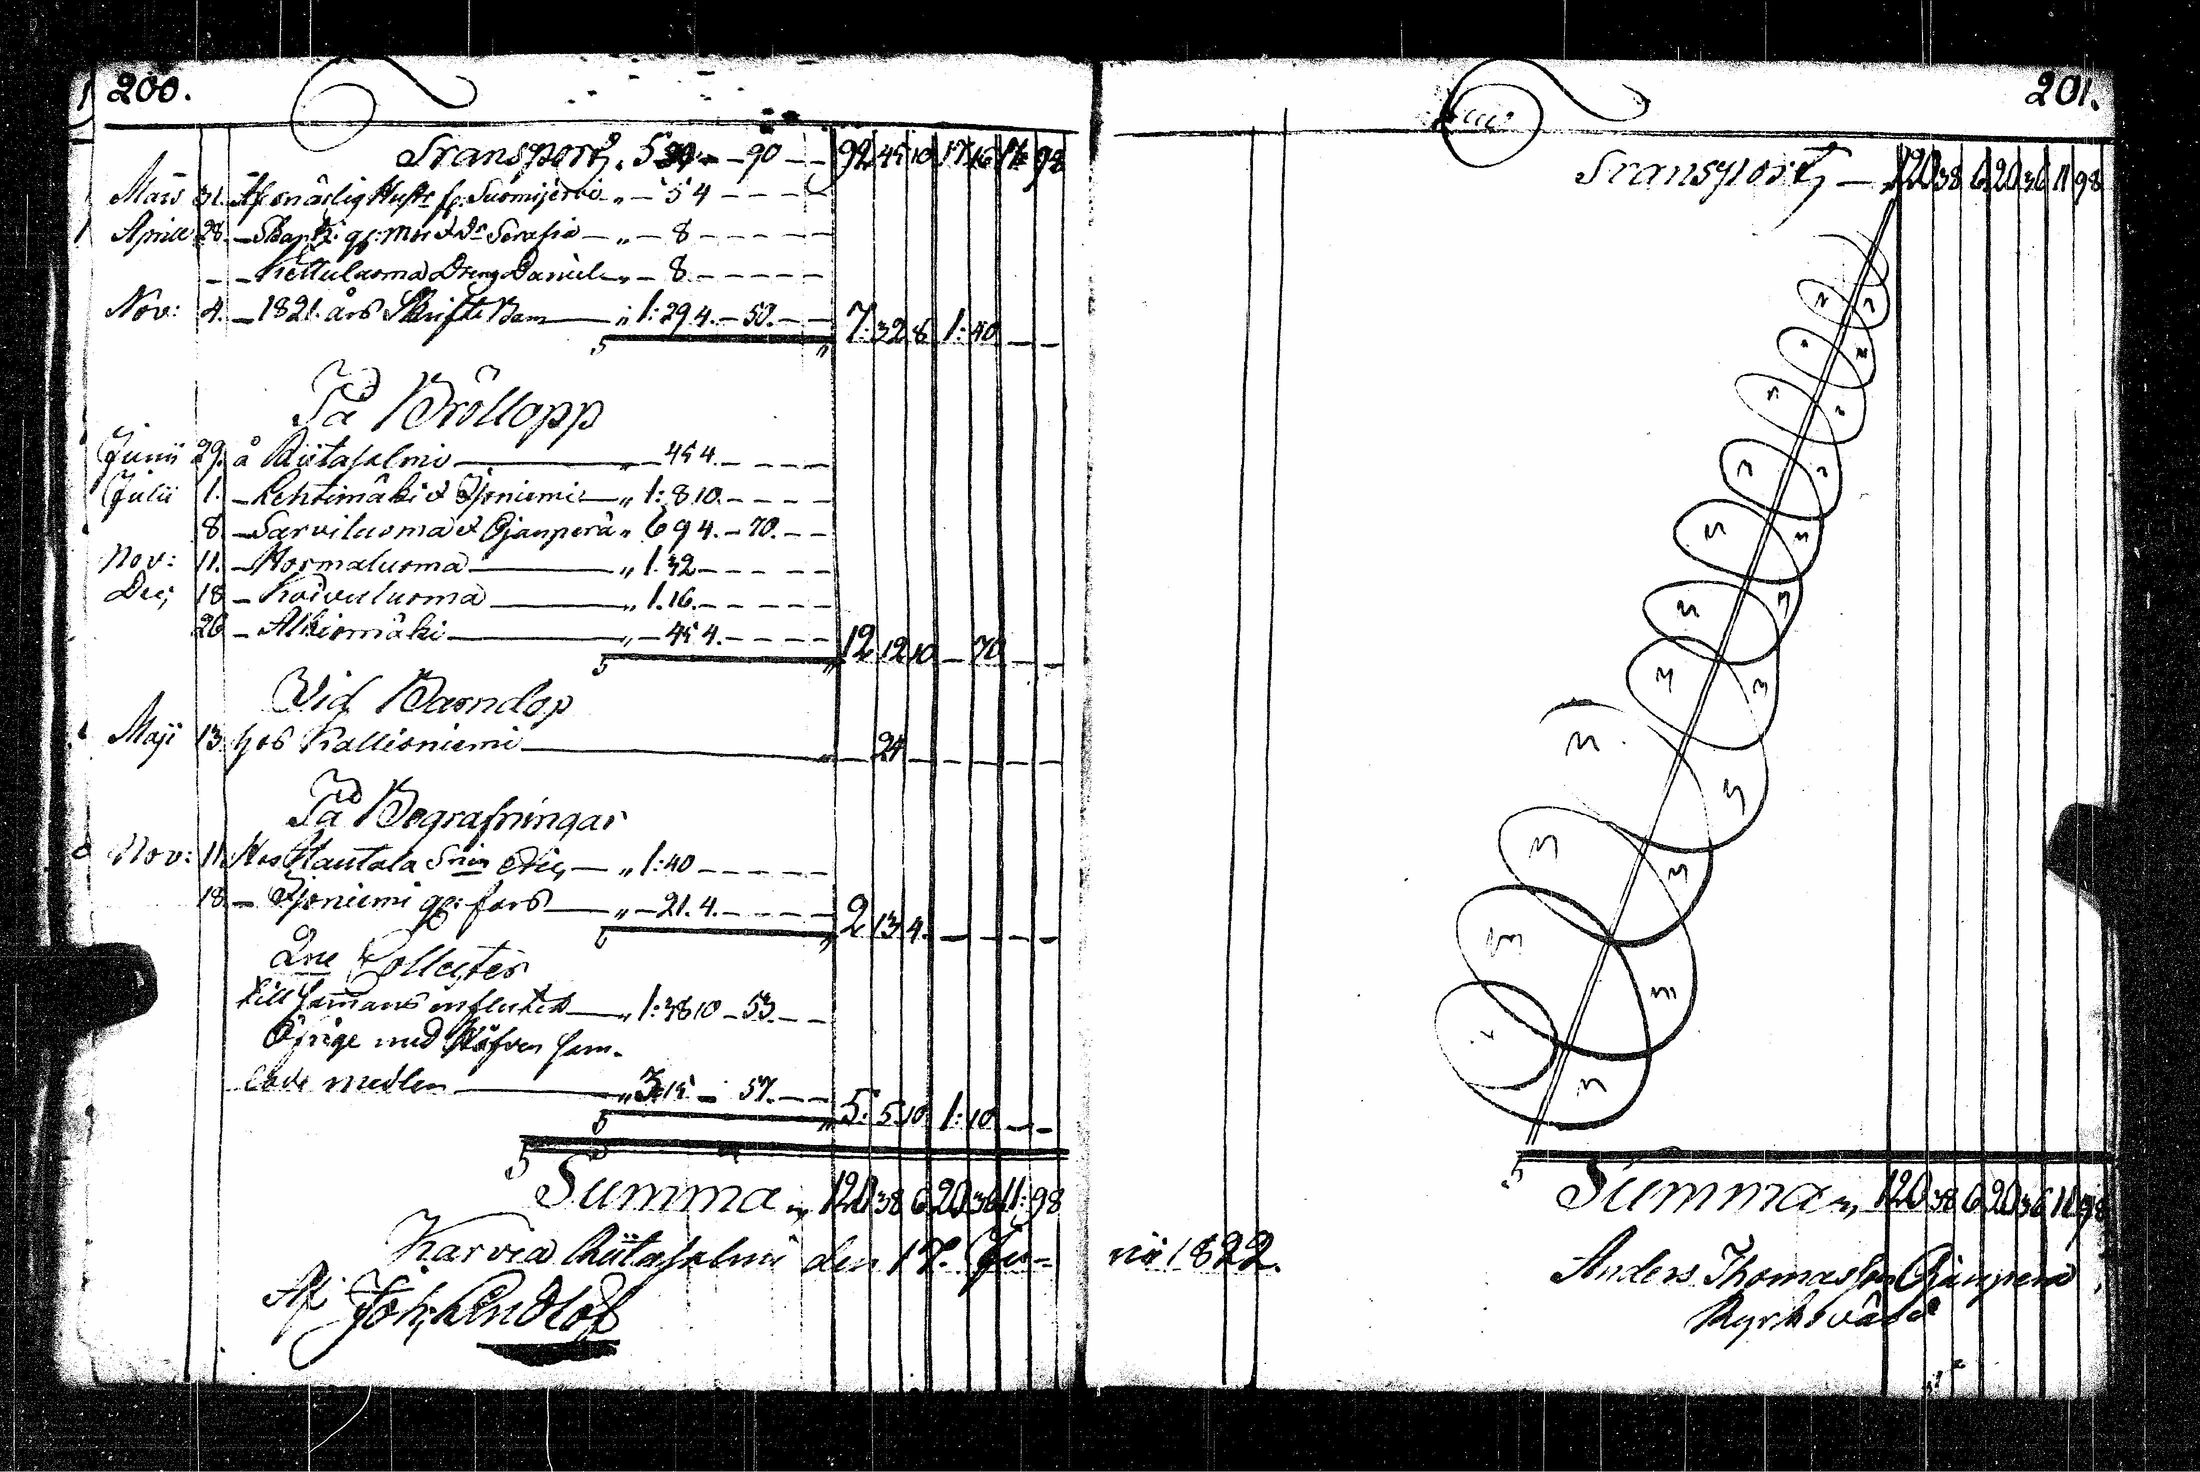 200.
Transport, 5 - 90 - 92 45 10 17 16 11 98
Mars 31. Af Suomijervi „ - 5 4
Aprill 28. - Serafia - „ - 8
- - Kettuluoma Dreng Daniel „ - 8
Nov: 4. - 1821 års Skrifte Barn „ 1:29.4. - 50. - 7:32 8 1:40 - -
På Bröllopp
Junii 29. å Riitasalmi „ - 45 4.
Julii 1. - Lehtimäki & Ojoniemi - „ 1:8 10.
8. - Sarviluoma & Ojanperä „ 6 9 4. - 70.
Nov: 11. - Hormaluoma „ 1.32
Dec; 18 - Koivuluoma „ 1.16.
26 - Alkiomäki „ - 45 4. 12 12 10 - 70 - -
Vid Barndop
Maji 13. hos Kallioniemi „ - 24 - - - - -
På Begrafningar
Nov: 11. Hos Hautala „ 1:40
18. - Ojoniemi fars „ - 21.4. 2 13 4. - - - -
Collecter
till influtit „ 1:38 10 - 53.
Öfrige med Håfven sam-
lade medlen „ 3 15 - 57. - 5:5 10 1:10 - -
Summa „ 120 38 6 20 36 11:98
Karvia Riitasalmi den 17. Ju-
Af Joh; Lindlöf
201.
Transport, - 120 38 6 20 36 11 98
Summa „ 120 38 6 20 36 11 98
nii 1822.
Anders Thomasson Ojanperä
Kyrkovärd